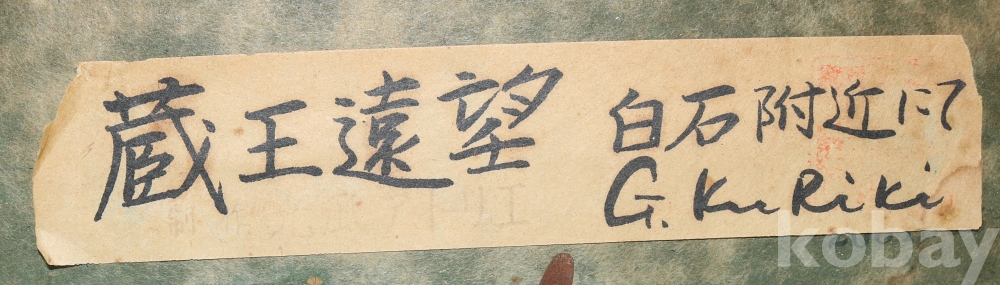 蔵王遠望 白石附近にて
G. KuRiKi
kobay